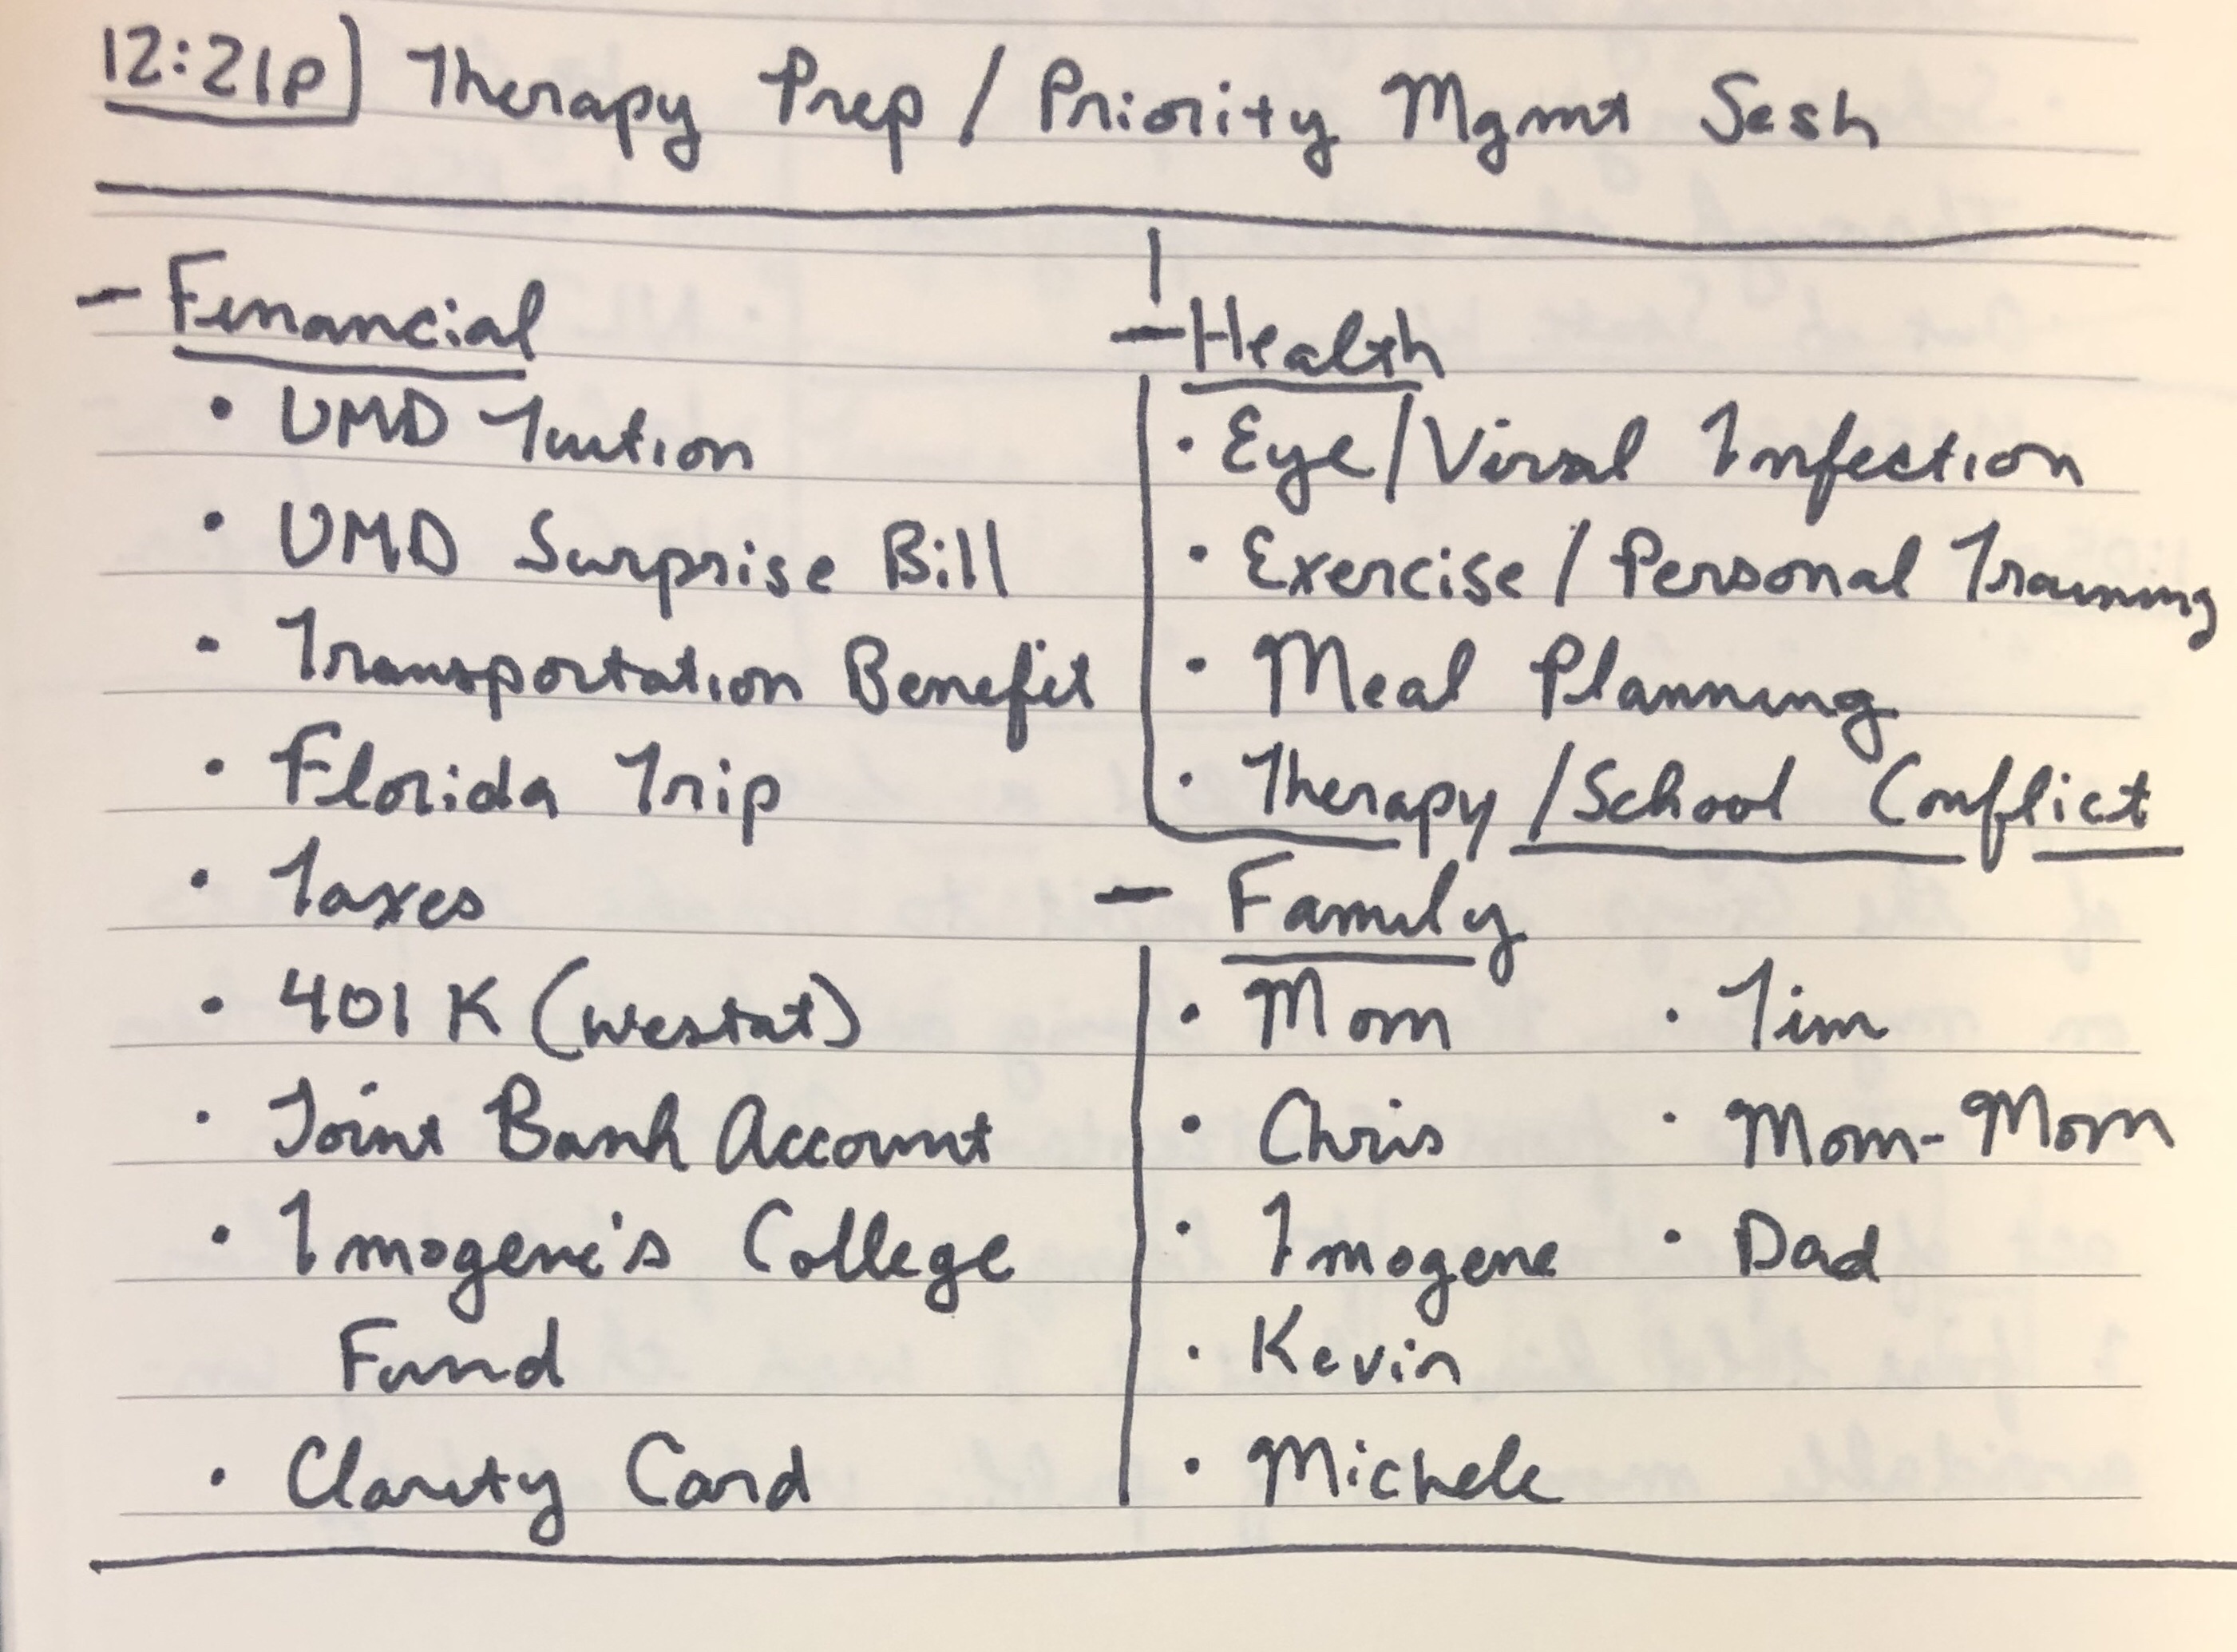 12:21p) Therapy Prep / Priority Mgmt Sesh
- Financial
• UMD Tuition
• UMD Surprise Bill
• Transportation Benefit
• Florida Trip
• Taxes
• 401K (Westat)
• Joint Bank Account
• Imogene's College
Fund
• Clarity Card
- Health
• Eye/Viral Infection
• Exercise / Personal Training
• Meal Planning
• Therapy / School Conflict
- Family
• Mom • Tim
• Chris • Mom-Mom
• Imogene • Dad
• Kevin
• Michele